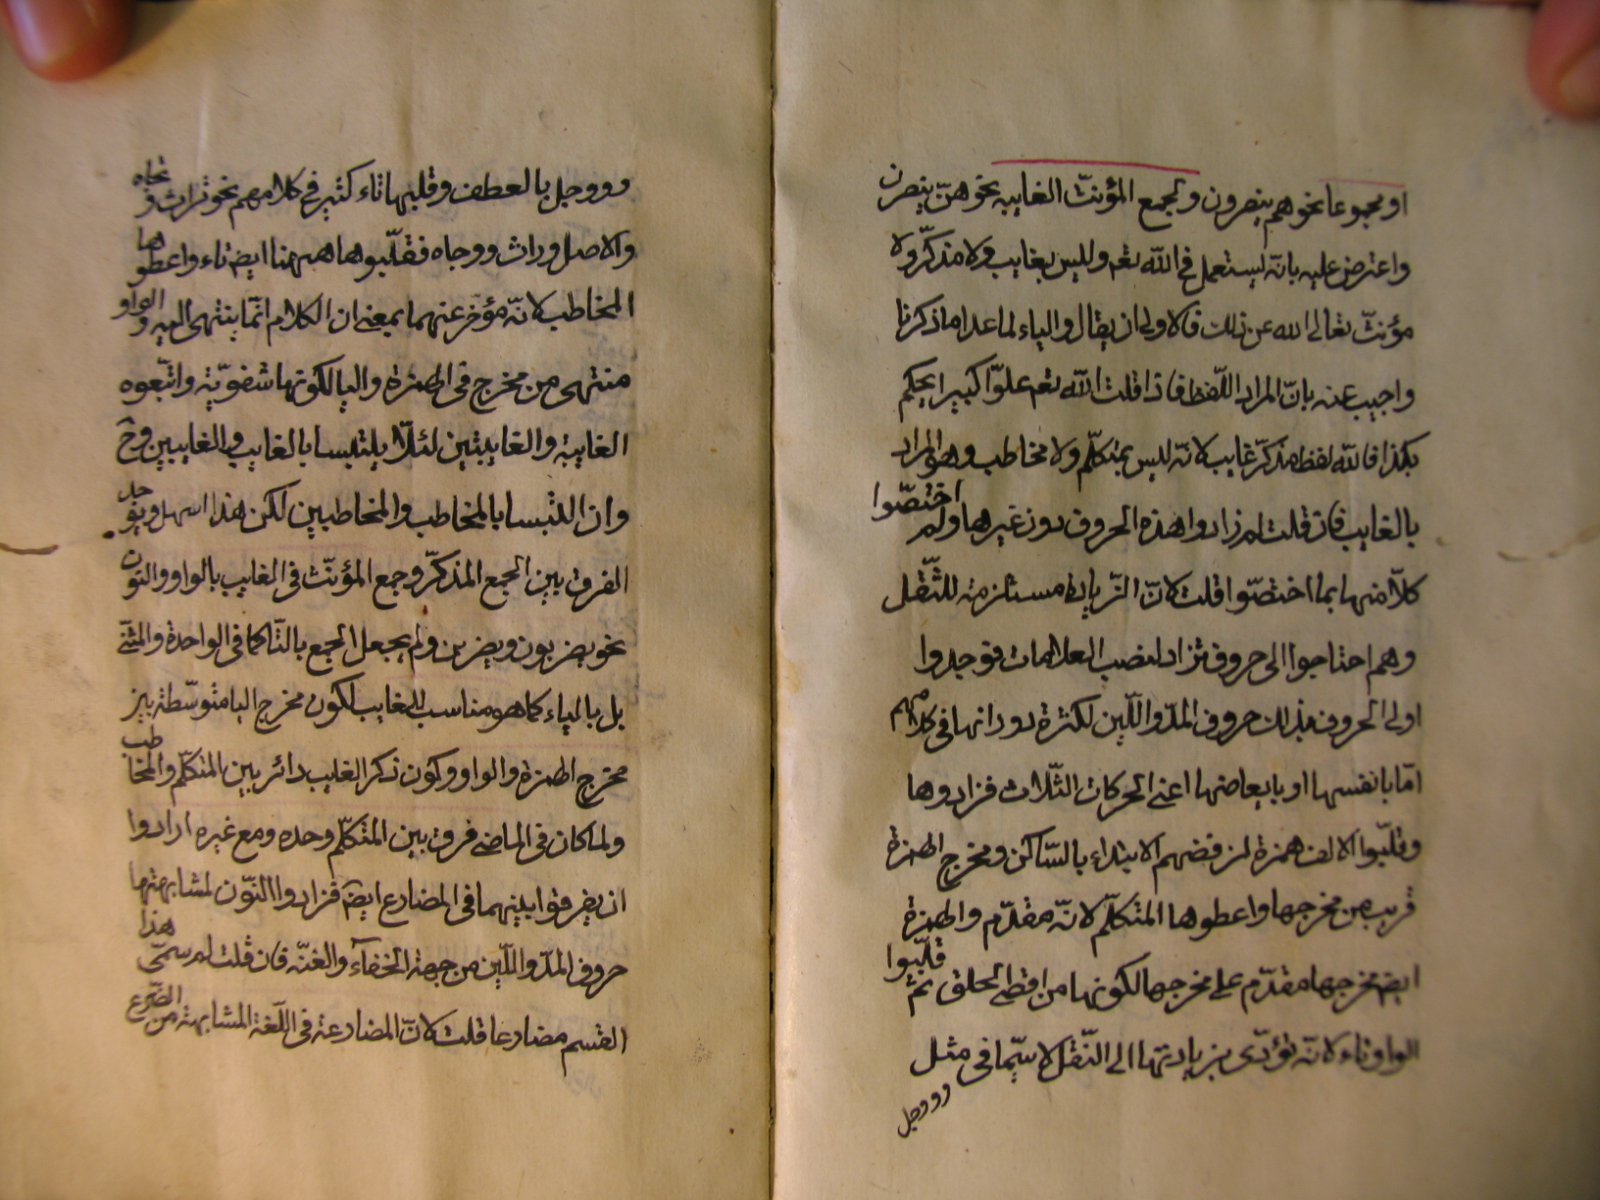 او مجموعا نحو هم ينصرون ولجمع المؤنّث الغايبة نحو هنّ ينصرن
واعترض عليه بانّه يستعمل في الله تعم وليس بغايب ولا مذكّر ولا
مؤنّث تعالى الله عن ذلك فالاولى ان يقال والياء لما عدا ما ذكرنا
واجيب عنه بانّ المراد اللّفظ فاذا قلت الله تعم علوّا كبيرا يحكم
بكذا فالله لفظ مذكّر غايب لانّه ليس بمتكلّم ولا مخاطب وهو المراد
بالغايب فان قلت لم زادوا هذه الحروف دون غيرها ولم اختصّوا
كلّا منها بما اختصّوا قلت لانّ الزّيادة مستلزمة للثّقل
وهم احتاجوا الى حروف تزاد لنصب العلامات فوجدوا
اولى الحروف بذلك حروف المدّ واللّين لكثرة دورانها في كلامهم
امّا بانفسها او بابعاضها اعني الحركات الثّلاث فزادوها
وقلّبوا الالف همزة لرفضهم الابتداء بالسّاكن ومخرج الهمزة
قريب من مخرجها واعطوها المتكلّم لانّه مقدّم والهمزة
ايضا مخرجها مقدّم على مخرجها لكونها من اقصى الحلق ثمّ قلّبوا
الواو تاء لانّه تؤدّى بزيادتها الى الثّقل لا سيّما في مثل
وووجل
وووجل بالعطف وقلبها تاء كثير في كلامهم نحو تراث و تجاه
والاصل وراث ووجاه فقلّبوها ههنا ايض تاء واعطوها
المخاطب لانّه مؤخّر عنهما بمعنى ان الكلام انّما ينتهى اليه والواو
منتهى من مخرج في الهمزة واليا لكونها شفويّة واتّبعوه
الغايبة والغايبتين لئلّا يلتبسا بالغايب والغايبين وح
وان التبسا بالمخاطب والمخاطبين لكن هذا اسهل ويوجد
الفرق بين الجمع المذكّر وجمع المؤنّث في الغايب بالواو والنون
نحو يضربون ويضربن ولم يجعل الجمع بالتّا كما في الواحدة والمثنّى
بل بالياء كما هو مناسب للغايب لكون مخرج اليا متوسّطة بين
مخرج الهمزة والواو وكون ذكر الغايب دائر بين المتكلّم والمخاطب
ولما كان في الماضي فرق بين المتكلّم وحده ومع غيره ارادوا
ان يفرقوا بينهما في المضارع ايضا فزادوا النّون لمشابهتها
حروف المدّ واللّين من جهة الخفاء والغنّه فان قلت لم سمّى هذا
القسم مضارعا قلت لانّ المضارعة في اللّغة المشابهة من الضّرع